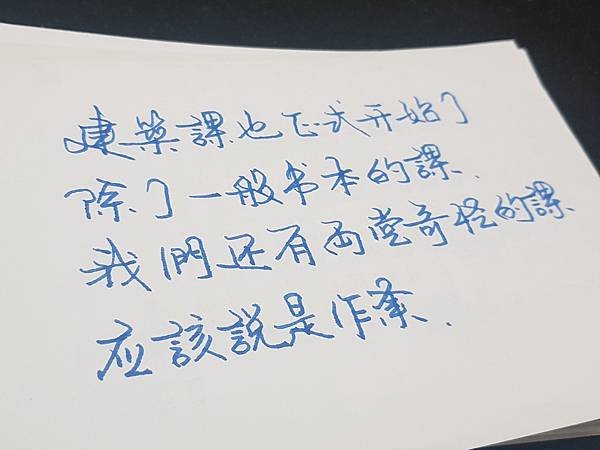 建築課也正式开始了
除了一般书本的課、
我們还有両堂奇怪的課、
应該説是作業、